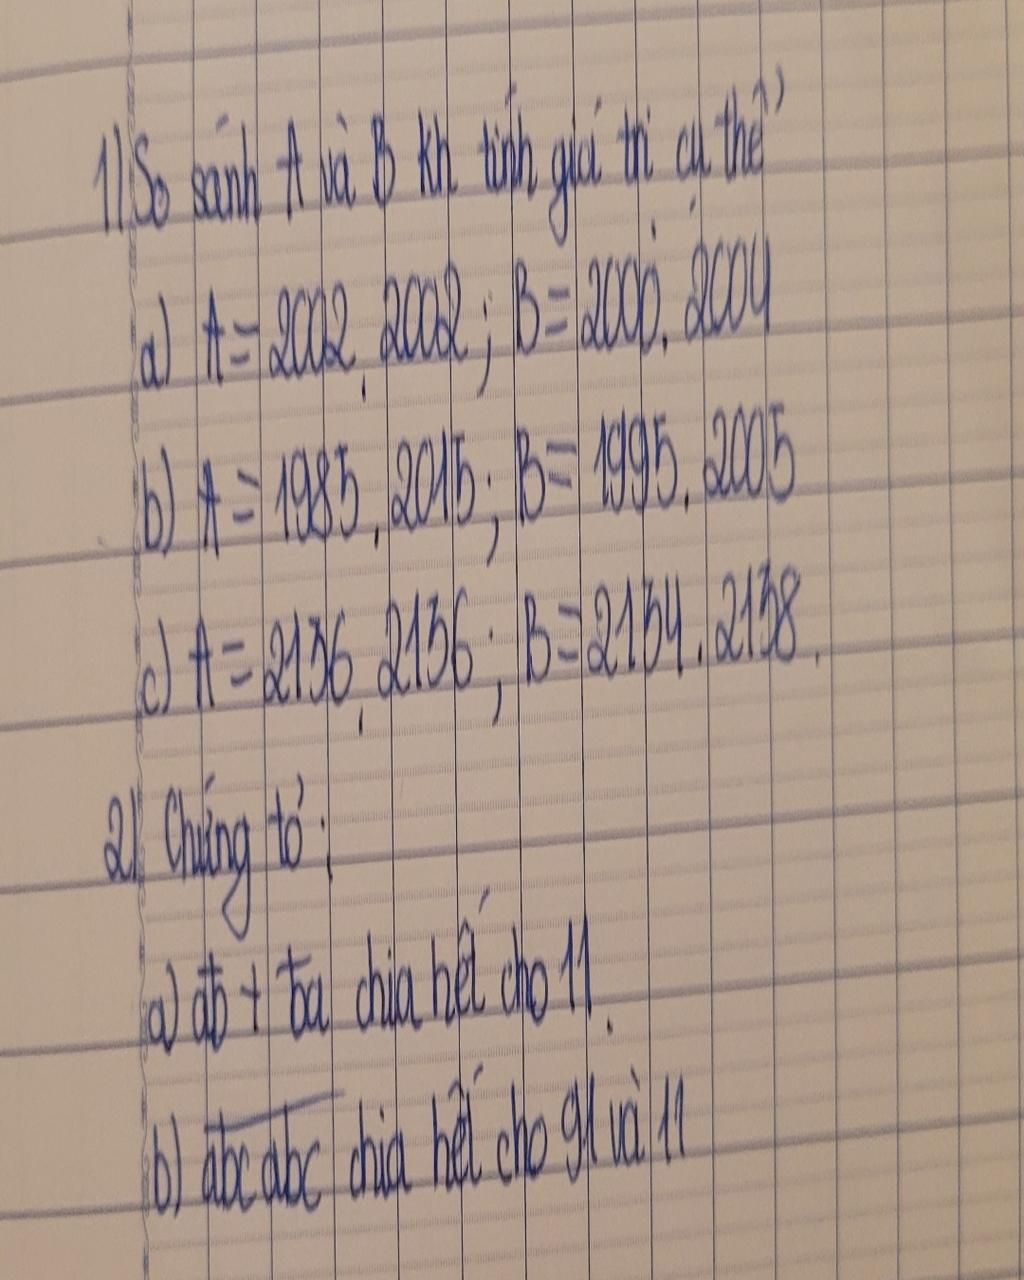 1) So sánh A và B kh tính giá trị cụ thể
a) A = 2002 . 2002 ; B = 2000 . 2004
b) A = 1985 . 2015 ; B = 1995 . 2005
c) A = 2156 . 2156 ; B = 2154 . 2158 .
2) Chứng tỏ :
a) a̅b̅ + b̅a̅ chia hết cho 11 .
b) a̅b̅c̅a̅b̅c̅ chia hết cho 91 và 11